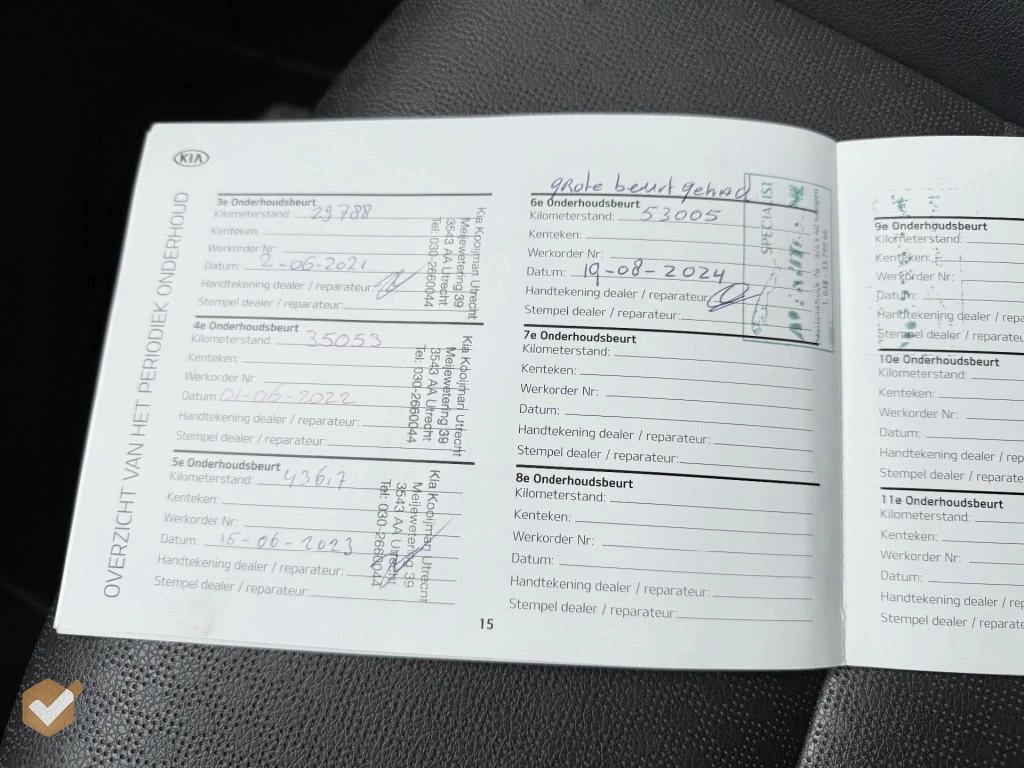 KIA
OVERZICHT VAN HET PERIODIEK ONDERHOUD
3e Onderhoudsbeurt
Kilometerstand: 29788
Kenteken:
Werkorder Nr:
Datum: 2-06-2021
Handtekening dealer / reparateur:
Stempel dealer / reparateur:
Kia Kooijman Utrecht
Meijewetering 39
3543 AA Utrecht
Tel: 030-2660044
4e Onderhoudsbeurt
Kilometerstand: 35053
Kenteken:
Werkorder Nr:
Datum: 01-06-2022
Handtekening dealer / reparateur:
Stempel dealer / reparateur:
Kia Kooijman Utrecht
Meijewetering 39
3543 AA Utrecht
Tel: 030-2660044
5e Onderhoudsbeurt
Kilometerstand:
Kenteken:
Werkorder Nr:
Datum: 15-06-2023
Handtekening dealer / reparateur:
Stempel dealer / reparateur:
Kia Kooijman Utrecht
Meijewetering 39
3543 AA Utrecht
Tel: 030-2660044
grote beurt gehad
6e Onderhoudsbeurt
Kilometerstand: 53005
Kenteken:
Werkorder Nr:
Datum: 19-08-2024
Handtekening dealer / reparateur:
Stempel dealer / reparateur:
SPECIALIST
7e Onderhoudsbeurt
Kilometerstand:
Kenteken:
Werkorder Nr:
Datum:
Handtekening dealer / reparateur:
Stempel dealer / reparateur:
8e Onderhoudsbeurt
Kilometerstand:
Kenteken:
Werkorder Nr:
Datum:
Handtekening dealer / reparateur:
Stempel dealer / reparateur:
15
9e Onderhoudsbeurt
Kilometerstand:
Kenteken:
Werkorder Nr:
Datum:
Handtekening dealer / repara
Stempel dealer / reparateu
10e Onderhoudsbeurt
Kilometerstand:
Kenteken:
Werkorder Nr:
Datum:
Handtekening dealer / rep
Stempel dealer / reparate
11e Onderhoudsbeurt
Kilometerstand:
Kenteken:
Werkorder Nr:
Datum:
Handtekening dealer / rep
Stempel dealer / reparate